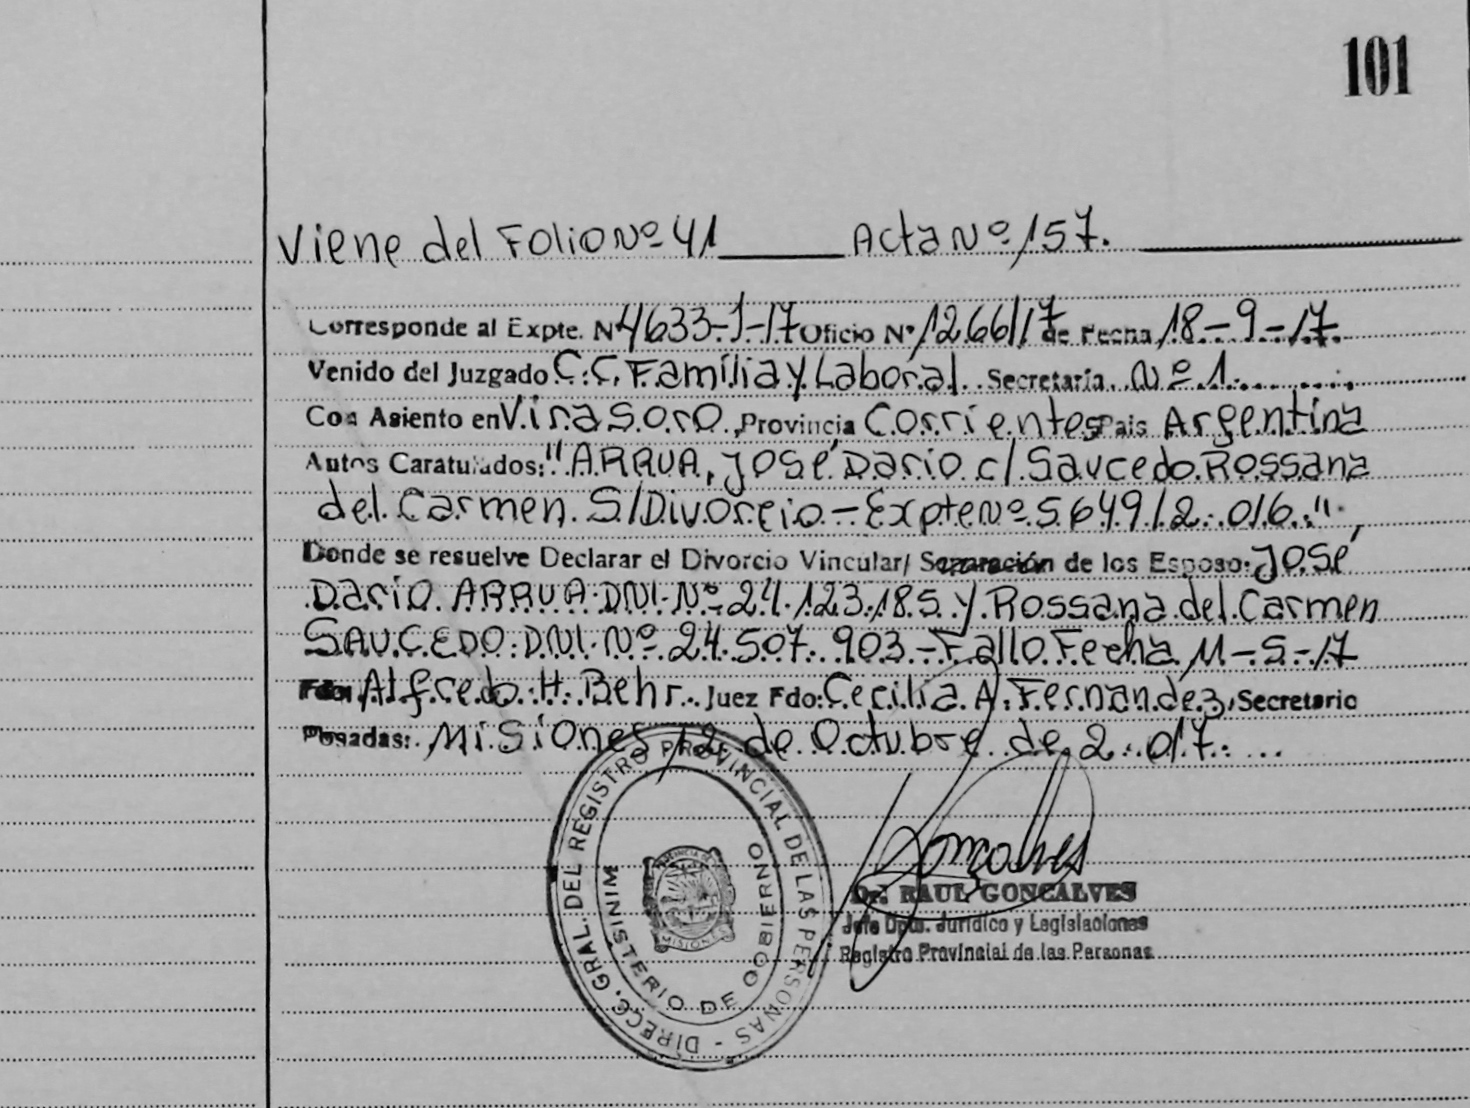 101
Viene del Folio Nº 41 Acta Nº 157.
Corresponde al Expte. Nº 4633-J-17 Oficio Nº 1266/17 de Fecha 18-9-17.
Venido del Juzgado C.C. Familia y Laboral. Secretaría Nº 1.
Con Asiento en Virasoro, Provincia Corrientes Pais Argentina
Autos Caratulados: "ARRUA, José Dario c/ Saucedo Rossana
del Carmen S/Divorcio - Expte Nº 5649/2.016."
Donde se resuelve Declarar el Divorcio Vincular/ Separación de los Esposo: José
Dario ARRUA DNI. Nº 24.123.185 y Rossana del Carmen
SAUCEDO. DNI. Nº 24.507.903.- Fallo Fecha 11-5-17
Fdo: Alfredo H. Behr. Juez Fdo: Cecilia A. Fernandez, Secretario
Posadas: Misiones 12 de Octubre de 2.017.
DIRECC. GRAL. DEL REGISTRO PROVINCIAL DE LAS PERSONAS -
MINISTERIO DE GOBIERNO
MISIONES
Goncalves
Dr. RAUL GONCALVES
Jefe Dpto. Jurídico y Legislaciones
Registro Provincial de las Personas